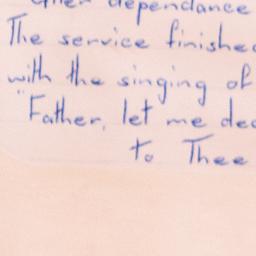 dependance
The service finished
with the singing of
"Father, let me ded
to Thee